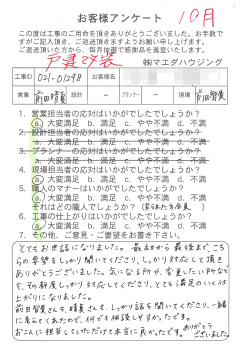 お客様アンケート 10月
この度は工事のご用命を頂きありがとうございました。お手数で
すがご記入頂き、ご返送頂きますようお願い申し上げます。
ご返送頂いた方から、毎月抽選で感謝品を進呈します。
戸建改装 ㈱マエダハウジング
工事ID 021-01248 お客様名
営業 前田 設計 － プランナー － 現場 前田智
1. 営業担当者の応対はいかがでしたでしょうか?
a. 大変満足 b. 満足 c. やや不満 d. 不満
2. 設計担当者の応対はいかがでしたでしょうか?
a. 大変満足 b. 満足 c. やや不満 d. 不満
3. プランナーの応対はいかがでしたでしょうか?
a. 大変満足 b. 満足 c. やや不満 d. 不満
4. 現場担当者の応対はいかがでしたでしょうか?
a. 大変満足 b. 満足 c. やや不満 d. 不満
5. 職人のマナーはいかがでしたでしょうか?
a. 大変満足 b. 満足 c. やや不満 d. 不満
それはどの職人でしょうか?
6. 工事の仕上がりはいかがでしたでしょうか?
a. 大変満足 b. 満足 c. やや不満 d. 不満
7. その他、ご意見・ご要望をお書き下さい。
とてもお世話になりました。最初から最後まで、こち
らの要望をしっかり聞いてくださり、しっかり対応して頂き
ありがとうございました。気になる所が、変更したい所など
も、その都度しっかり対応してくださり、とても満足のいく仕
上がりになりました。
前田智さんも、晴夏さんも、しっかり話を聞いてくださり、一緒
に考えてくれたので、何でも相談しやすかったです。
お二人に担当していただけて本当に良かったです。ありがとうございました。